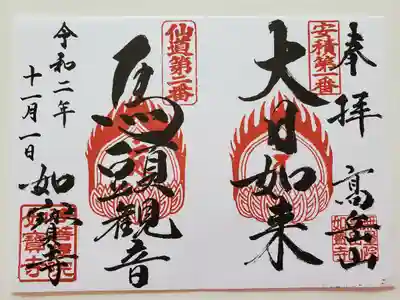 奉拝
高岳山
安積第一番
大日如来
仙道第二番
馬頭観音
令和二年
十一月一日
如寳寺